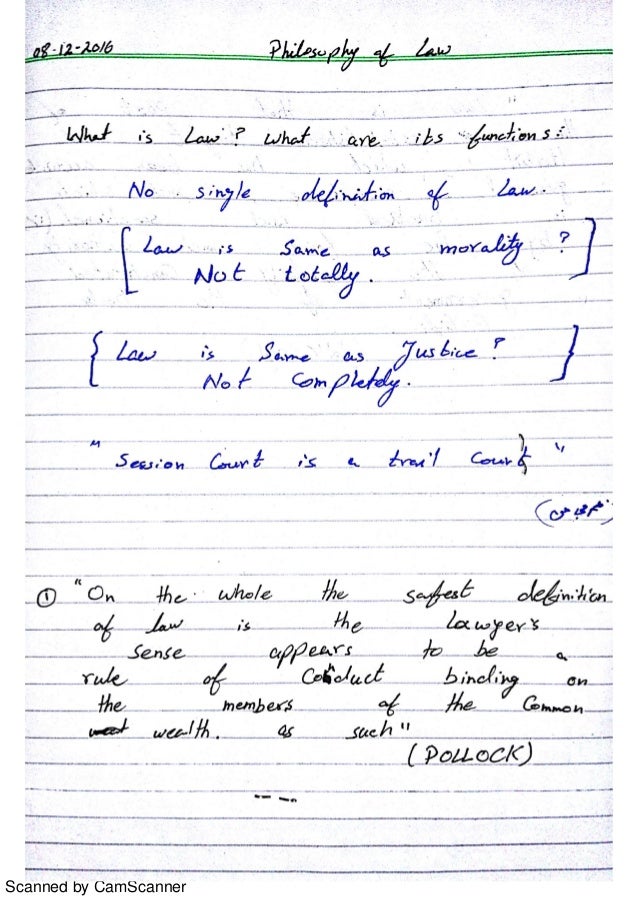 08-12-2016 Philosophy of Law
What is Law? What are its functions:
No single definition of Law.
[ Law is Same as morality ? ]
Not totally.
{ Law is Same as Justice ? }
Not Completely.
" Session Court is a trail Court "
① "On the whole the safest definition
of law is the lawyer's
sense appears to be a
rule of Conduct binding on
the members of the Common
wealth. as such"
(POLLOCK)
Scanned by CamScanner